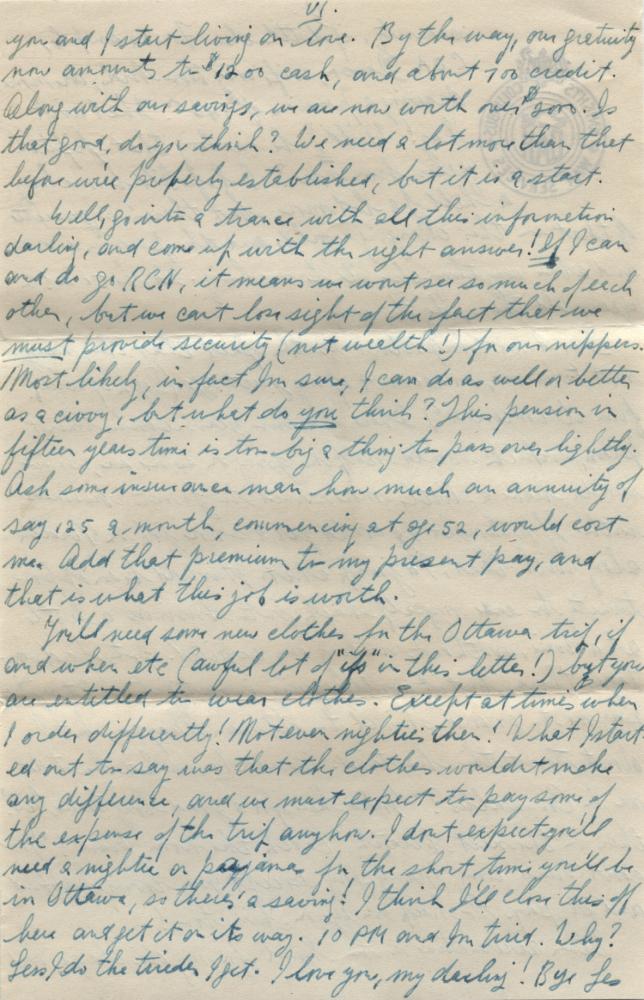 VI.
you and I start living on love. By the way, our gratuity
now amounts to $1200 cash, and about 700 credit.
Along with our savings, we are now worth over $ Is
that good, do you think? We need a lot more than that
before we're properly established, but it is a start.
Well, go into a trance with all this information
darling, and come up with the right answer! If I can
and do go RCN, it means we wont see so much of each
other, but we cant lose sight of the fact that we
must provide security (not wealth!) for our nippers.
Most likely, in fact Im sure, I can do as well or better
as a civvy, but what do you think? This pension in
fifteen years time is too big a thing to pass over lightly.
Ask some insurance man how much an annuity of
say 125 a month, commencing at age 52, would cost
me. Add that premium to my present pay, and
that is what this job is worth.
You'll need some new clothes for the Ottawa trip, if
and when etc (awful lot of "ifs" in this letter!) but you
are entitled to wear clothes. Except at times when
I order differently! Not even nighties then! What I start
ed out to say was that the clothes wouldnt make
any difference, and we must expect to pay some of
the expense of the trip anyhow. I dont expect you'll
need a nightie or pajamas for the short time you'll be
in Ottawa, so there's a saving! I think I'll close this off
here and get it on its way. 10 PM and Im tired. Why?
Less I do the tireder I get. I love you, my darling! Bye Les